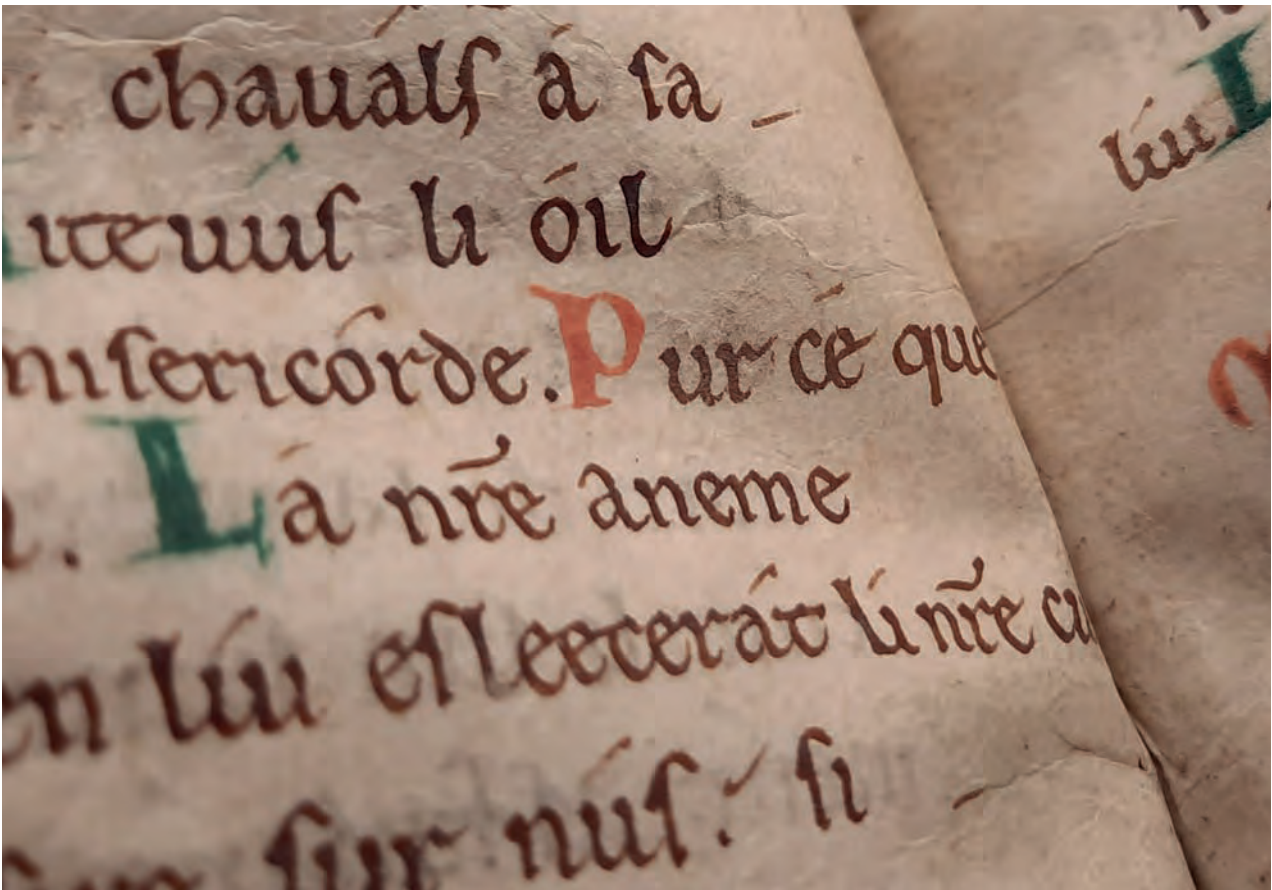 chauals á sa
uus li óil
misericórde. Pur cé que
Lá nr̄e aneme
en líu esleecerát li nr̄e
sur nús: si
líu. L